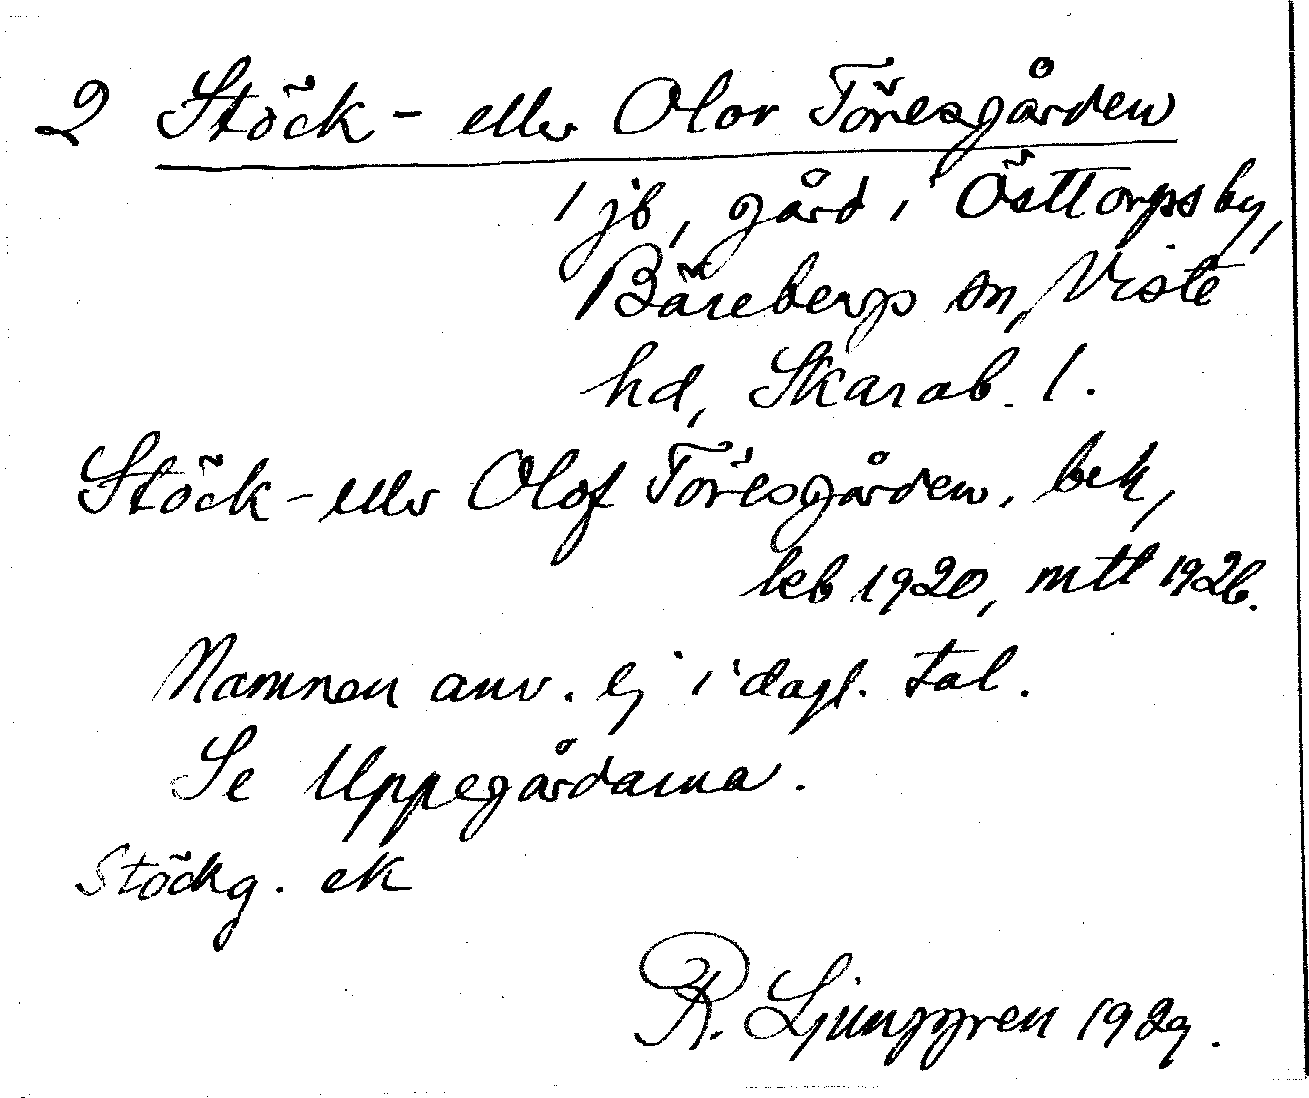 2 Stöck- eller Olov Töresgården
1 jb, gård i Östtorps by,
Bärebergs sn, Viste
hd, Skarab. l.
Stöck- eller Olof Töresgården, bek,
keb 1920, mtl 1926.
Namnen anv. ej i dagl. tal.
Se Uppegårdarna.
Stöckg. ek
R. Ljunggren 1929.